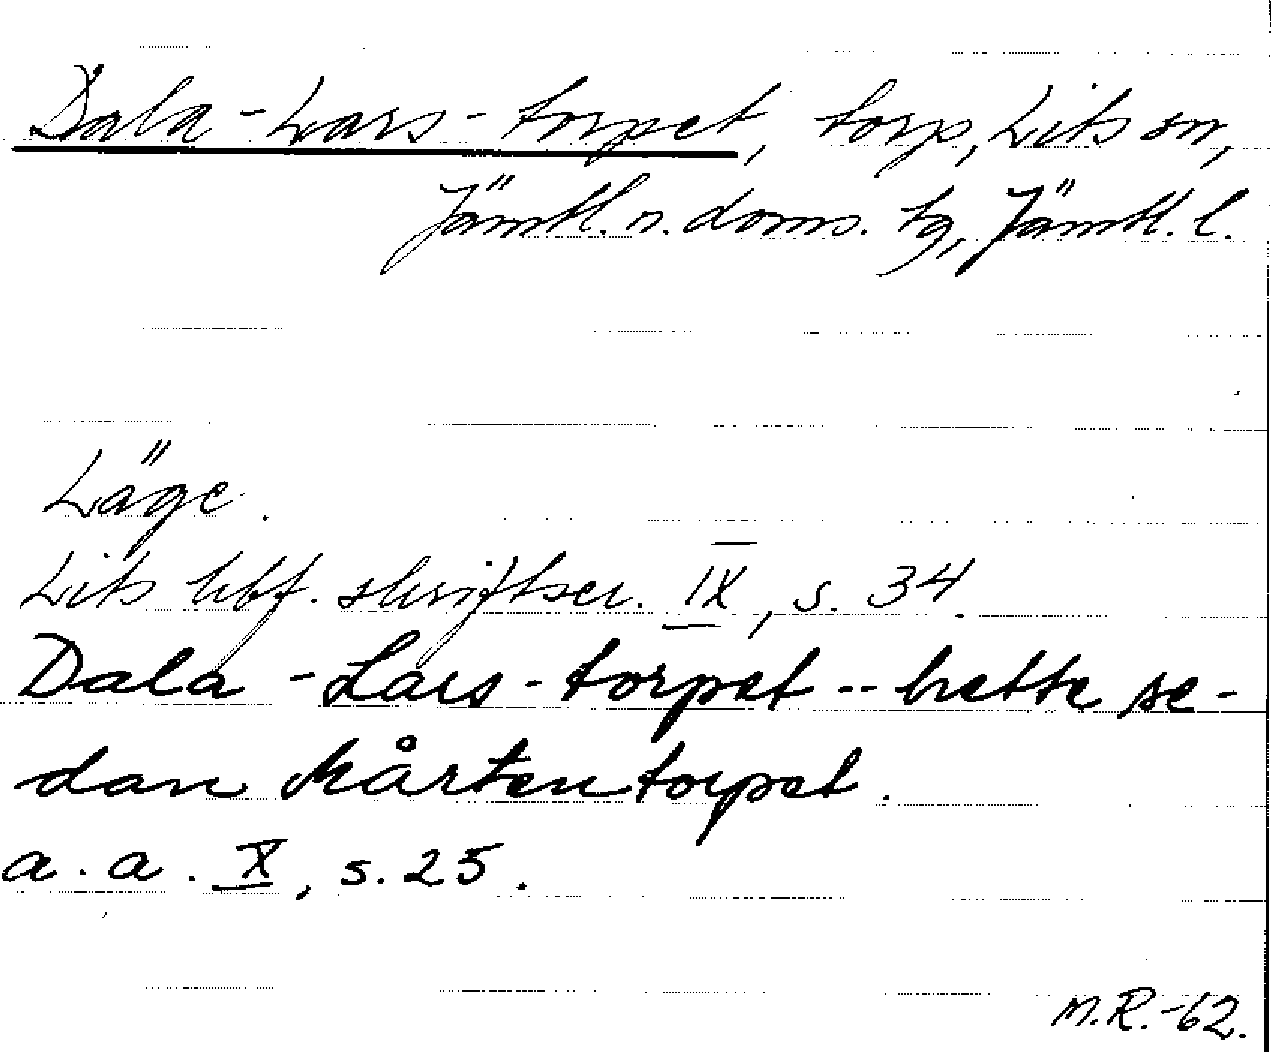 Dala-Lars-torpet, torp, Lits sn,
Jämtl. n. doms. tg, Jämtl. l.
Läge.
Lits hbf. skriftser. IX, s. 34.
Dala-Lars-torpet -- hette se-
dan Mårtentorpet.
a. a. X, s. 25.
M.R.-62.